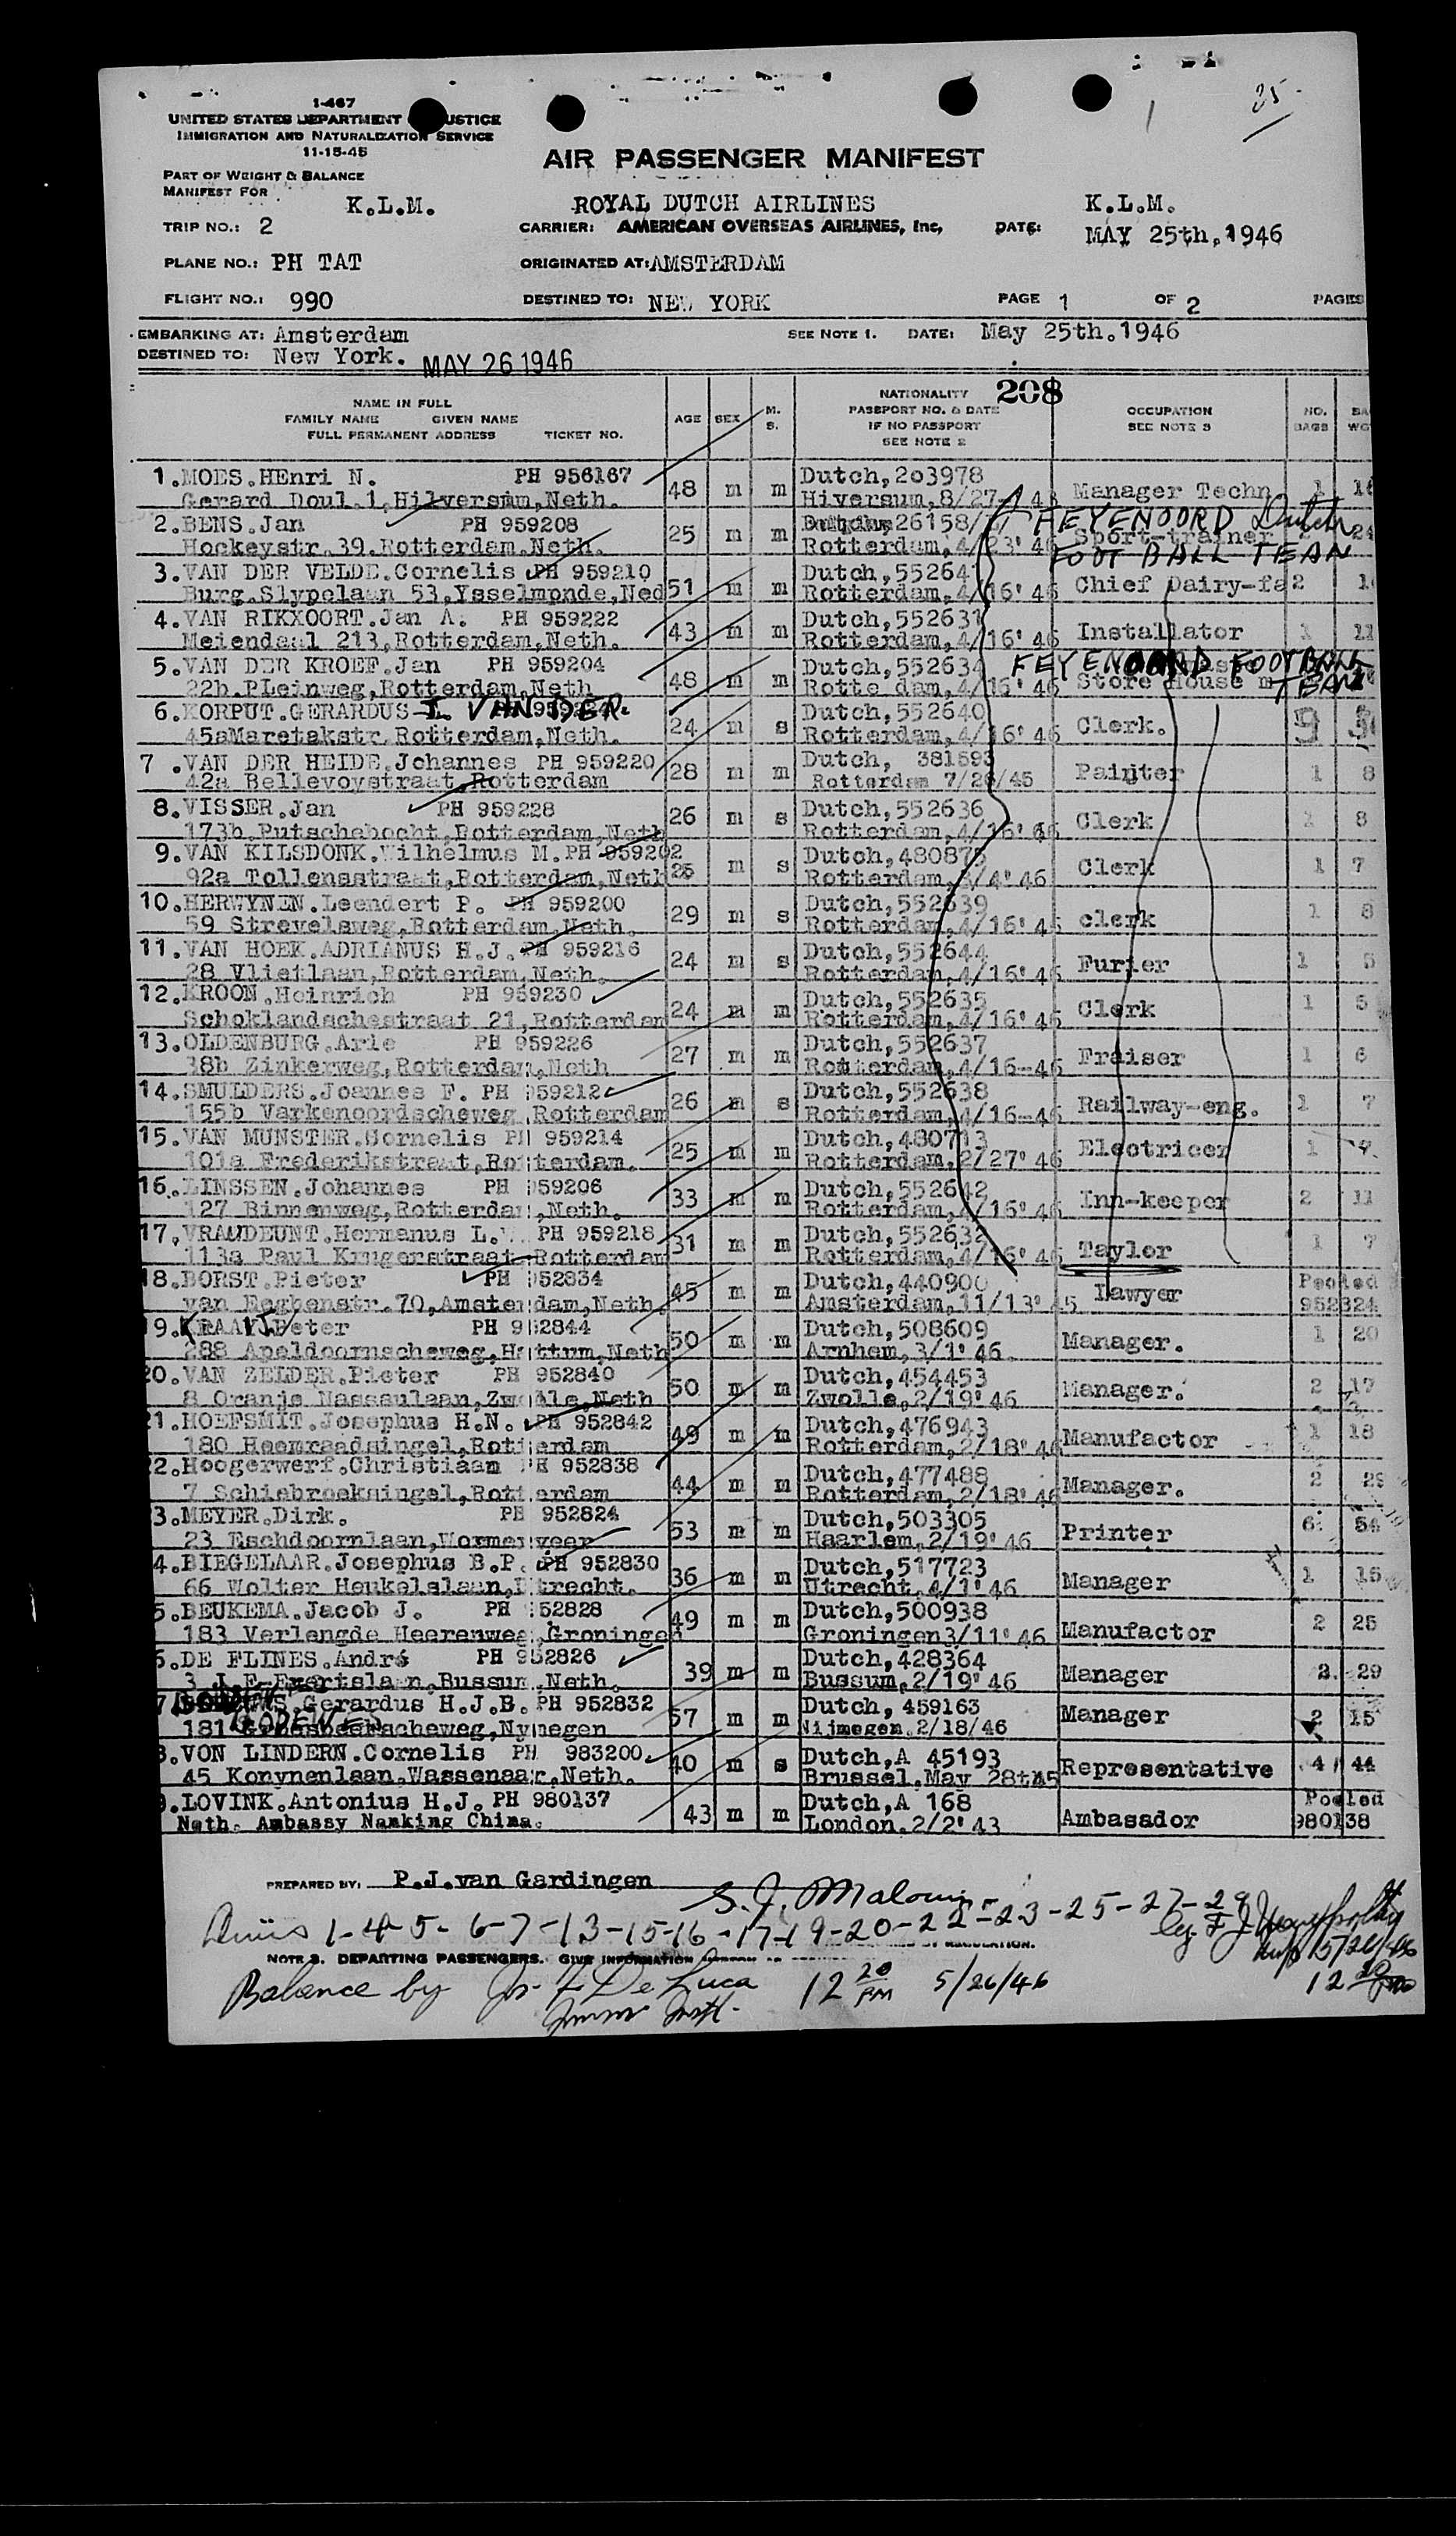 1-467
UNITED STATES DEPARTMENT USTICE
IMMIGRATION AND NATURALIZATION SERVICE
11-15-45
25-
AIR PASSENGER MANIFEST
PART OF WEIGHT & BALANCE
MANIFEST FOR
K.L.M. ROYAL DUTCH AIRLINES K.L.M.
TRIP NO.: 2 CARRIER: AMERICAN OVERSEAS AIRLINES, Inc, DATE: MAY 25th.1946
PLANE NO.: PH TAT ORIGINATED AT: AMSTERDAM
FLIGHT NO.: 990 DESTINED TO: NEW YORK PAGE 1 OF 2 PAGES
EMBARKING AT: Amsterdam SEE NOTE 1. DATE: May 25th.1946
DESTINED TO: New York. MAY 26 1946
208
NAME IN FULL
FAMILY NAME GIVEN NAME
FULL PERMANENT ADDRESS TICKET NO.
AGE SEX M. S.
NATIONALITY
PASSPORT NO. & DATE
IF NO PASSPORT
SEE NOTE 2
OCCUPATION
SEE NOTE 3
NO. BAGS
1.MOES.HEnri N. PH 956167 48 m m Dutch,2o3978 Manager Techn 1
Gerard Doul.1,Hilversum,Neth. Hiversum,8/27
2.BENS.Jan PH 959208 25 m m 26158 Sport-trainer 24
FEYENOORD Dutch
FOOT BALL TEAM
Hockeystr.39.Rotterdam.Neth. Rotterdam,4/23'46
3.VAN DER VELDE.Cornelis PH 959210 51 m m Dutch,552641 Chief Dairy-fa 2
Burg.Slypelaan 53,Ysselmonde,Ned Rotterdam,4/16'46
4.VAN RIKXOORT.Jan A. PH 959222 43 m m Dutch,552631 Installator 1 11
Meiendaal 213,Rotterdam,Neth. Rotterdam,4/16'46
5.VAN DER KROEF.Jan PH 959204 48 m m Dutch,552634 Store House m
FEYENOORD FOOTBALL
TEAM
22b.PLeinweg,Rotterdam,Neth Rotte dam,4/16'46
6.KORPUT.GERARDUS I. VAN DER. 24 m s Dutch,552640 Clerk. 9
45aMaretakstr.Rotterdam,Neth. Rotterdam,4/16'46
7 .VAN DER HEIDE.Johannes PH 959220 28 m m Dutch, 381593 Painter 1 8
42a Bellevoystraat,Rotterdam Rotterdam 7/26/45
8.VISSER.Jan PH 959228 26 m s Dutch,552636 Clerk 1 8
173b.Putschebocht,Rotterdam,Neth Rotterdam,4/16'46
9.VAN KILSDONK.Wilhelmus M.PH 959202 25 m s Dutch,480875 Clerk 1 7
92a Tollensstraat,Rotterdam,Neth Rotterdam,3/4'46
10.HERWYNEN.Leendert P. PH 959200 29 m s Dutch,552639 clerk 1 8
59 Strevelsweg,Rotterdam,Neth. Rotterdam,4/16'46
11.VAN HOEK.ADRIANUS H.J. PH 959216 24 m s Dutch,552644 Furier 1 5
28 Vlietlaan,Rotterdam,Neth. Rotterdam,4/16'46
12.KROON.Heinrich PH 959230 24 m m Dutch,552635 Clerk 1 5
Schoklandschestraat 21,Rotterdam Rotterdam,4/16'46
13.OLDENBURG.Arie PH 959226 27 m m Dutch,552637 Fraiser 1 6
38b Zinkerweg,Rotterdam,Neth Rotterdam,4/16-46
14.SMULDERS.Joannes F. PH 959212 26 m s Dutch,552638 Railway-eng. 1 7
155b Varkenoordscheweg,Rotterdam Rotterdam,4/16-46
15.VAN MUNSTER.Cornelis PH 959214 25 m m Dutch,480713 Electricer 1 7
101a Frederikstraat,Rotterdam. Rotterdam.2/27'46
16.LINSSEN.Johannes PH 959206 33 m m Dutch,552642 Inn-keeper 2 11
127 Binnenweg,Rotterdam,Neth. Rotterdam,4/16'46
17.VRAUDEUNT.Hermanus L. PH 959218 31 m m Dutch,552632 Taylor 1 7
113a Paul Krugerstraat Rotterdam Rotterdam,4/16'46
18.BORST.Pieter PH 952834 45 m m Dutch,440900 Lawyer Pooled
van Eeghenstr.70,Amsterdam,Neth. Amsterdam,11/13'45 952824
19.KRAAYJ.Peter PH 952844 50 m m Dutch,508609 Manager. 1 20
288 Apeldoornscheweg,Hattum,Neth Arnhem,3/1'46.
20.VAN ZELDER.Pieter PH 952840 50 m m Dutch,454453 Manager. 2 17
8 Oranje Nassaulaan,Zwolle,Neth Zwolle,2/19'46
21.HOEFSMIT.Josephus H.N. PH 952842 49 m m Dutch,476943 Manufactor 1 18
180 Heemraadsingel,Rotterdam Rotterdam,2/18'46
22.Hoogerwerf.Christiaan PH 952838 44 m m Dutch,477488 Manager. 2
7 Schiebroeksingel,Rotterdam Rotterdam,2/18'46
3.MEYER.Dirk. PH 952824 53 m m Dutch,503305 Printer 6 54
23 Eschdoornlaan,Wormerveer Haarlem,2/19'46
4.BIEGELAAR.Josephus B.P. PH 952830 36 m m Dutch,517723 Manager 1 15
66 Wolter Heukelslaan,Utrecht. Utrecht,4/1'46
5.BEUKEMA.Jacob J. PH 952828 49 m m Dutch,500938 Manufactor 2 25
183 Verlengde Heerenweg,Groningen Groningen3/11'46
6.DE FLINES.André PH 952826 39 m m Dutch,428364 Manager 2. 29
3 J.F.Evertslaan,Bussum,Neth. Bussum,2/19'46
7 Gerardus H.J.B. PH 952832 57 m m Dutch, 459163 Manager 2 15
BODEWES
181 Nymegen Nijmegen.2/18/46
8.VON LINDERN.Cornelis PH 983200 40 m s Dutch,A 45193 Representative 4 44
45 Konynenlaan,Wassenaar,Neth. Brussel.May 28th45
9.LOVINK.Antonius H.J. PH 980137 43 m m Dutch,A 168 Ambasador Pooled
Neth. Ambassy Nanking China. London.2/2'43 980138
PREPARED BY: P.J.van Gardingen
S. J. Malow
1-4-5-6-7-13-15-16-17-19-20-22-23-25-27-29
NOTE 3. DEPARTING PASSENGERS. GIVE INFORMATION
Balance by Jos. F De Luca 12 20 PM 5/26/46
Immr Inst.